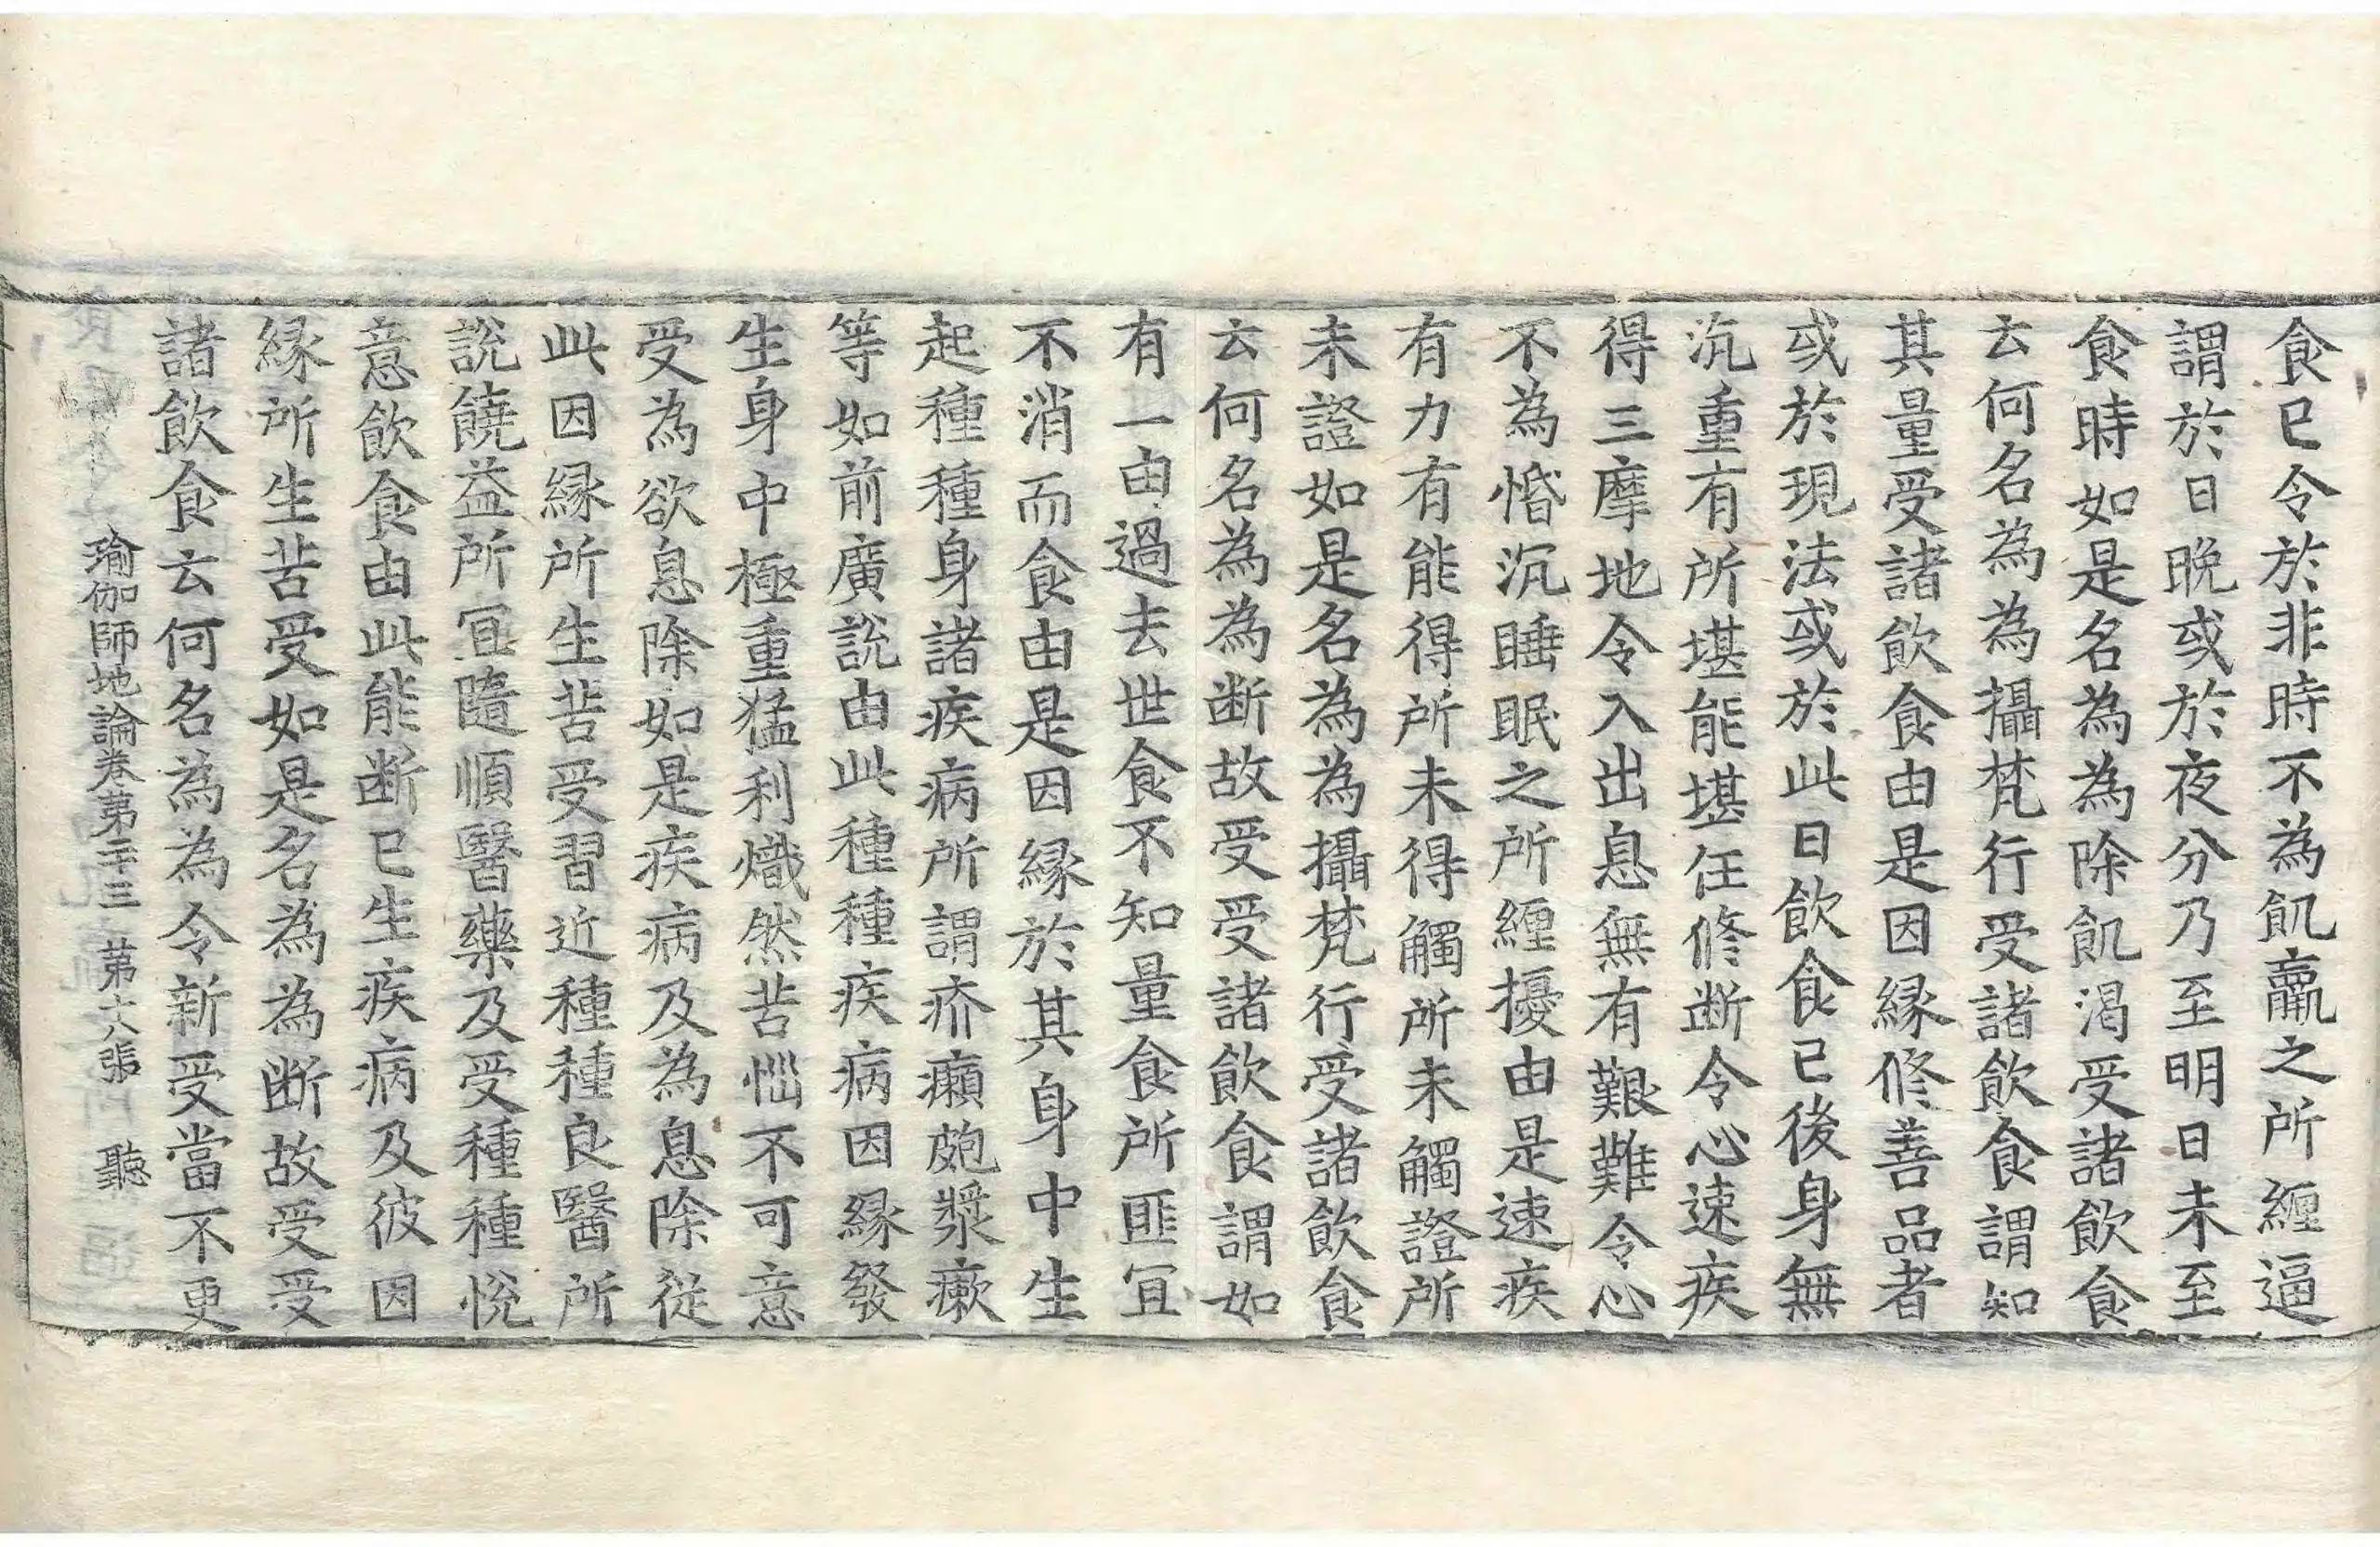 食已令於非時不為飢羸之所纏逼
謂於日晚或於夜分乃至明日未至
食時如是名為為除飢渴受諸飲食
云何名為為攝梵行受諸飲食謂知
其量受諸飲食由是因緣修善品者
或於現法或於此日飲食已後身無
沉重有所堪能堪任修断令心速疾
得三摩地令入出息無有艱難令心
不為惛沉睡眠之所纏擾由是速疾
有力有能得所未得觸所未觸證所
未證如是名為為攝梵行受諸飲食
云何名為為断故受受諸飲食謂如
有一由過去世食不知量食所匪冝
不消而食由是因緣於其身中生
起種種身諸疾病所謂疥癩皰漿瘶
等如前廣說由此種種疾病因緣發
生身中極重猛利熾然苦惱不可意
受為欲息除如是疾病及為息除従
此因緣所生苦受習近種種良醫所
說饒益所冝隨順醫藥及受種種悅
意飲食由此能断已生疾病及彼因
緣所生苦受如是名為為断故受受
諸飲食云何名為為令新受當不更
瑜伽師地論卷第二十三 第十八張 聽